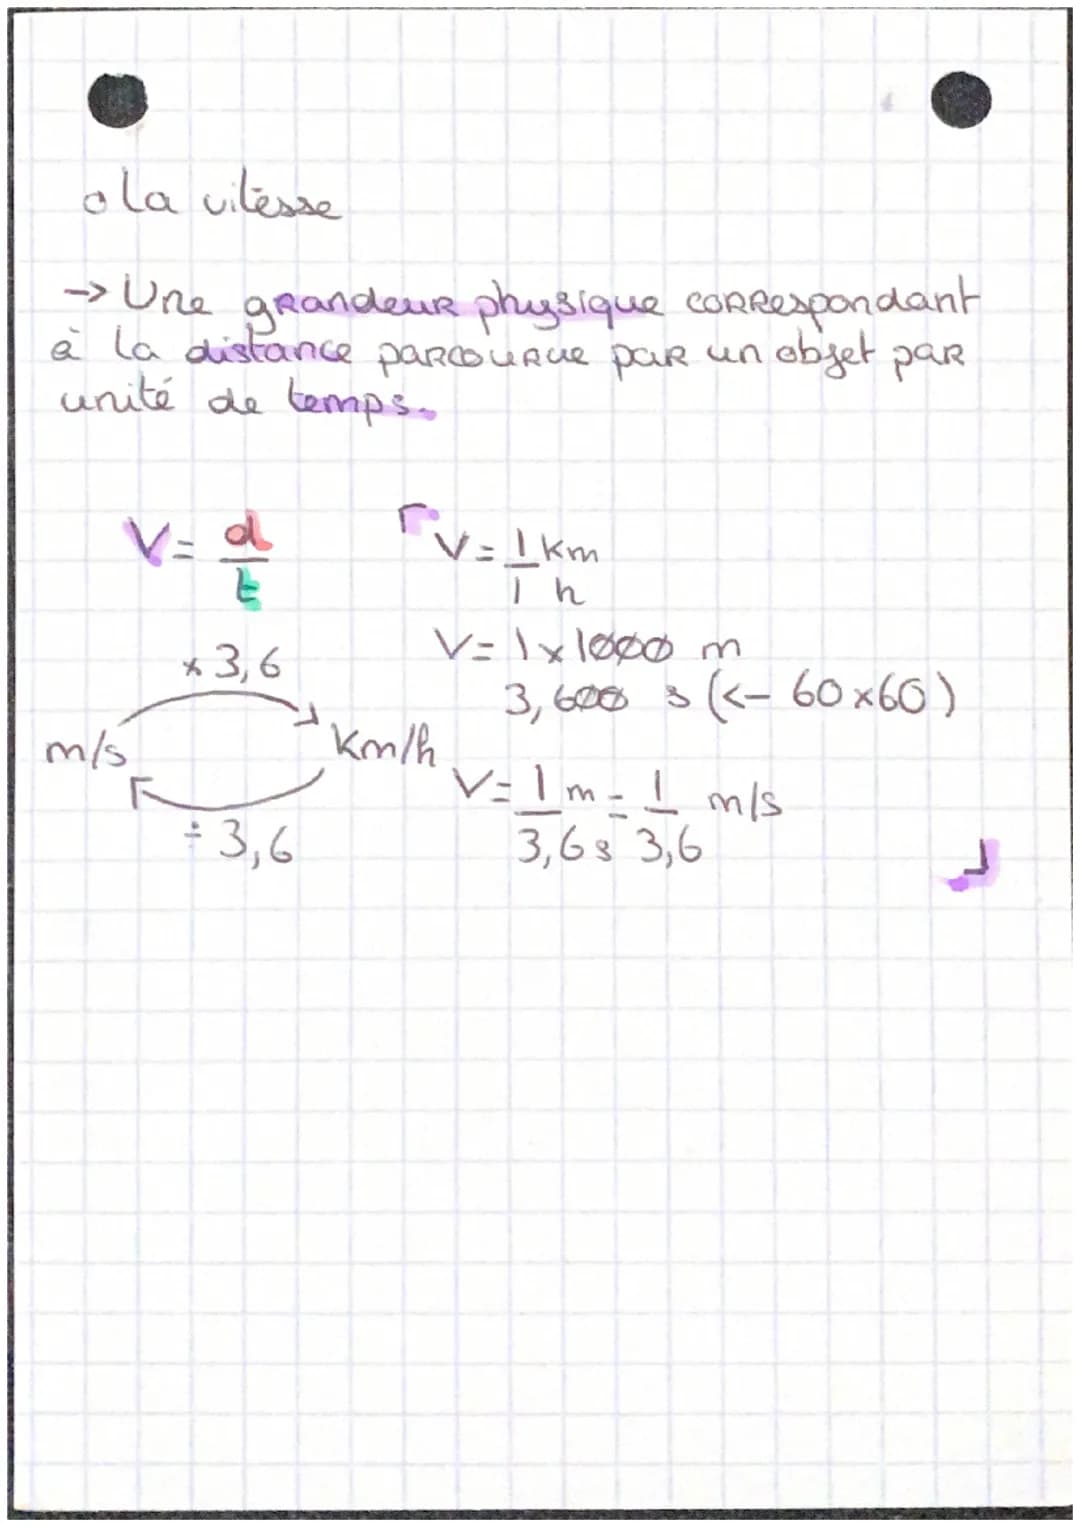 o La vitesse
→ Une grandeur physique correspondant
à la distance parcourue par un objet par
unité de temps.
V = d/t
x 3,6
m/s
km/h
÷ 3,6
V = 1/1 km/h
V = 1 x 1000 m
3,600 s (<- 60x60)
V = 1 m/3,6 s = 1/3,6 m/s